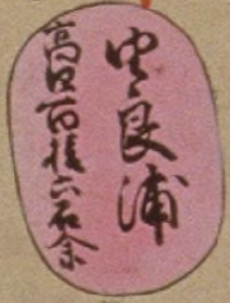 由良浦
高四百拾六石余